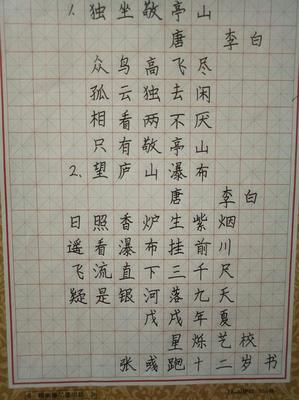 1. 独坐敬亭山
唐 李白
众鸟高飞尽
孤云独去闲
相看两不厌
只有敬亭山
2. 望庐山瀑布
唐 李白
日照香炉生紫烟
遥看瀑布挂前川
飞流直下三千尺
疑是银河落九天
戊戌年夏
星烁艺校
张 十二岁书